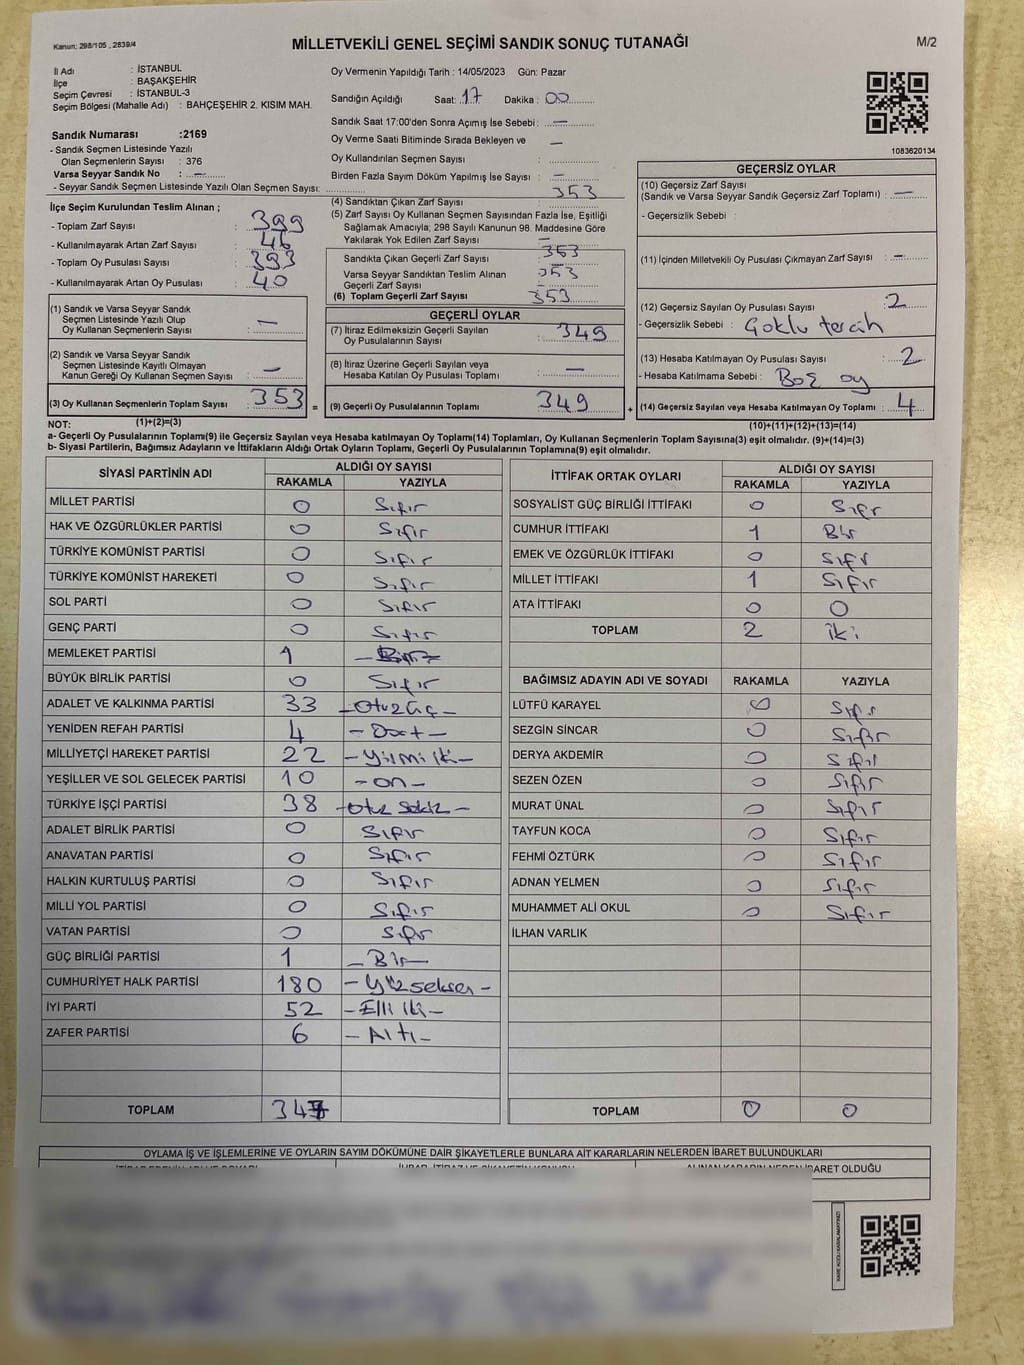 Kanun; 298/105 , 2839/4
MİLLETVEKİLİ GENEL SEÇİMİ SANDIK SONUÇ TUTANAĞI
M/2
İl Adı : İSTANBUL
İlçe : BAŞAKŞEHİR
Seçim Çevresi : İSTANBUL-3
Seçim Bölgesi (Mahalle Adı) : BAHÇEŞEHİR 2. KISIM MAH.
Sandık Numarası :2169
- Sandık Seçmen Listesinde Yazılı
Olan Seçmenlerin Sayısı : 376
Varsa Seyyar Sandık No : —
- Seyyar Sandık Seçmen Listesinde Yazılı Olan Seçmen Sayısı:
Oy Vermenin Yapıldığı Tarih : 14/05/2023 Gün: Pazar
Sandığın Açıldığı Saat: 17 Dakika : 00
Sandık Saat 17:00'den Sonra Açımış İse Sebebi : —
Oy Verme Saati Bitiminde Sırada Bekleyen ve —
Oy Kullandırılan Seçmen Sayısı :
Birden Fazla Sayım Döküm Yapılmış İse Sayısı : —
1083620134
İlçe Seçim Kurulundan Teslim Alınan ;
- Toplam Zarf Sayısı : 399
- Kullanılmayarak Artan Zarf Sayısı : 46
- Toplam Oy Pusulası Sayısı : 393
- Kullanılmayarak Artan Oy Pusulası : 40
(1) Sandık ve Varsa Seyyar Sandık
Seçmen Listesinde Yazılı Olup
Oy Kullanan Seçmenlerin Sayısı : —
(2) Sandık ve Varsa Seyyar Sandık
Seçmen Listesinde Kayıtlı Olmayan
Kanun Gereği Oy Kullanan Seçmen Sayısı : —
(3) Oy Kullanan Seçmenlerin Toplam Sayısı : 353 =
(4) Sandıktan Çıkan Zarf Sayısı : 353
(5) Zarf Sayısı Oy Kullanan Seçmen Sayısından Fazla İse, Eşitliği
Sağlamak Amacıyla; 298 Sayılı Kanunun 98. Maddesine Göre
Yakılarak Yok Edilen Zarf Sayısı : —
Sandıkta Çıkan Geçerli Zarf Sayısı : 353
Varsa Seyyar Sandıktan Teslim Alınan
Geçerli Zarf Sayısı : 353
(6) Toplam Geçerli Zarf Sayısı : 353
GEÇERLİ OYLAR
(7) İtiraz Edilmeksizin Geçerli Sayılan
Oy Pusulalarının Sayısı : 349
(8) İtiraz Üzerine Geçerli Sayılan veya
Hesaba Katılan Oy Pusulası Toplamı : —
(9) Geçerli Oy Pusulalarının Toplamı : 349 +
GEÇERSİZ OYLAR
(10) Geçersiz Zarf Sayısı
(Sandık ve Varsa Seyyar Sandık Geçersiz Zarf Toplamı) : —
- Geçersizlik Sebebi :
(11) İçinden Milletvekili Oy Pusulası Çıkmayan Zarf Sayısı : —
(12) Geçersiz Sayılan Oy Pusulası Sayısı : 2
- Geçersizlik Sebebi : Çoklu tercih
(13) Hesaba Katılmayan Oy Pusulası Sayısı : 2
- Hesaba Katılmama Sebebi : Boş oy
(14) Geçersiz Sayılan veya Hesaba Katılmayan Oy Toplamı : 4
NOT: (1)+(2)=(3)
(10)+(11)+(12)+(13)=(14)
a- Geçerli Oy Pusulalarının Toplamı(9) ile Geçersiz Sayılan veya Hesaba katılmayan Oy Toplamı(14) Toplamları, Oy Kullanan Seçmenlerin Toplam Sayısına(3) eşit olmalıdır. (9)+(14)=(3)
b- Siyasi Partilerin, Bağımsız Adayların ve İttifakların Aldığı Ortak Oyların Toplamı, Geçerli Oy Pusulalarının Toplamına(9) eşit olmalıdır.
SİYASİ PARTİNİN ADI ALDIĞI OY SAYISI
RAKAMLA YAZIYLA
MİLLET PARTİSİ 0 Sıfır
HAK VE ÖZGÜRLÜKLER PARTİSİ 0 Sıfır
TÜRKİYE KOMÜNİST PARTİSİ 0 Sıfır
TÜRKİYE KOMÜNİST HAREKETİ 0 Sıfır
SOL PARTİ 0 Sıfır
GENÇ PARTİ 0 Sıfır
MEMLEKET PARTİSİ 1
BÜYÜK BİRLİK PARTİSİ 0 Sıfır
ADALET VE KALKINMA PARTİSİ 33 -Otuzüç-
YENİDEN REFAH PARTİSİ 4 -Dört-
MİLLİYETÇİ HAREKET PARTİSİ 22 -Yirmi iki-
YEŞİLLER VE SOL GELECEK PARTİSİ 10 -on-
TÜRKİYE İŞÇİ PARTİSİ 38 -otuz sekiz-
ADALET BİRLİK PARTİSİ 0 Sıfır
ANAVATAN PARTİSİ 0 Sıfır
HALKIN KURTULUŞ PARTİSİ 0 Sıfır
MİLLİ YOL PARTİSİ 0 Sıfır
VATAN PARTİSİ 0 Sıfr
GÜÇ BİRLİĞİ PARTİSİ 1 -Bir-
CUMHURİYET HALK PARTİSİ 180 -Yüzseksen-
İYİ PARTİ 52 -Elli iki-
ZAFER PARTİSİ 6 -Altı-
TOPLAM 347
İTTİFAK ORTAK OYLARI ALDIĞI OY SAYISI
RAKAMLA YAZIYLA
SOSYALİST GÜÇ BİRLİĞİ İTTİFAKI 0 Sıfr
CUMHUR İTTİFAKI 1 Bir
EMEK VE ÖZGÜRLÜK İTTİFAKI 0 Sıfır
MİLLET İTTİFAKI 1 Sıfır
ATA İTTİFAKI 0 0
TOPLAM 2 iki
BAĞIMSIZ ADAYIN ADI VE SOYADI RAKAMLA YAZIYLA
LÜTFÜ KARAYEL 0 Sıfır
SEZGİN SİNCAR 0 Sıfır
DERYA AKDEMİR 0 Sıfır
SEZEN ÖZEN 0 Sıfır
MURAT ÜNAL 0 Sıfır
TAYFUN KOCA 0 Sıfır
FEHMİ ÖZTÜRK 0 Sıfır
ADNAN YELMEN 0 Sıfır
MUHAMMET ALİ OKUL 0 Sıfır
İLHAN VARLIK
TOPLAM 0 0
OYLAMA İŞ VE İŞLEMLERİNE VE OYLARIN SAYIM DÖKÜMÜNE DAİR ŞİKAYETLERLE BUNLARA AİT KARARLARIN NELERDEN İBARET BULUNDUKLARI
ALINAN KARARIN NEDEN İBARET OLDUĞU